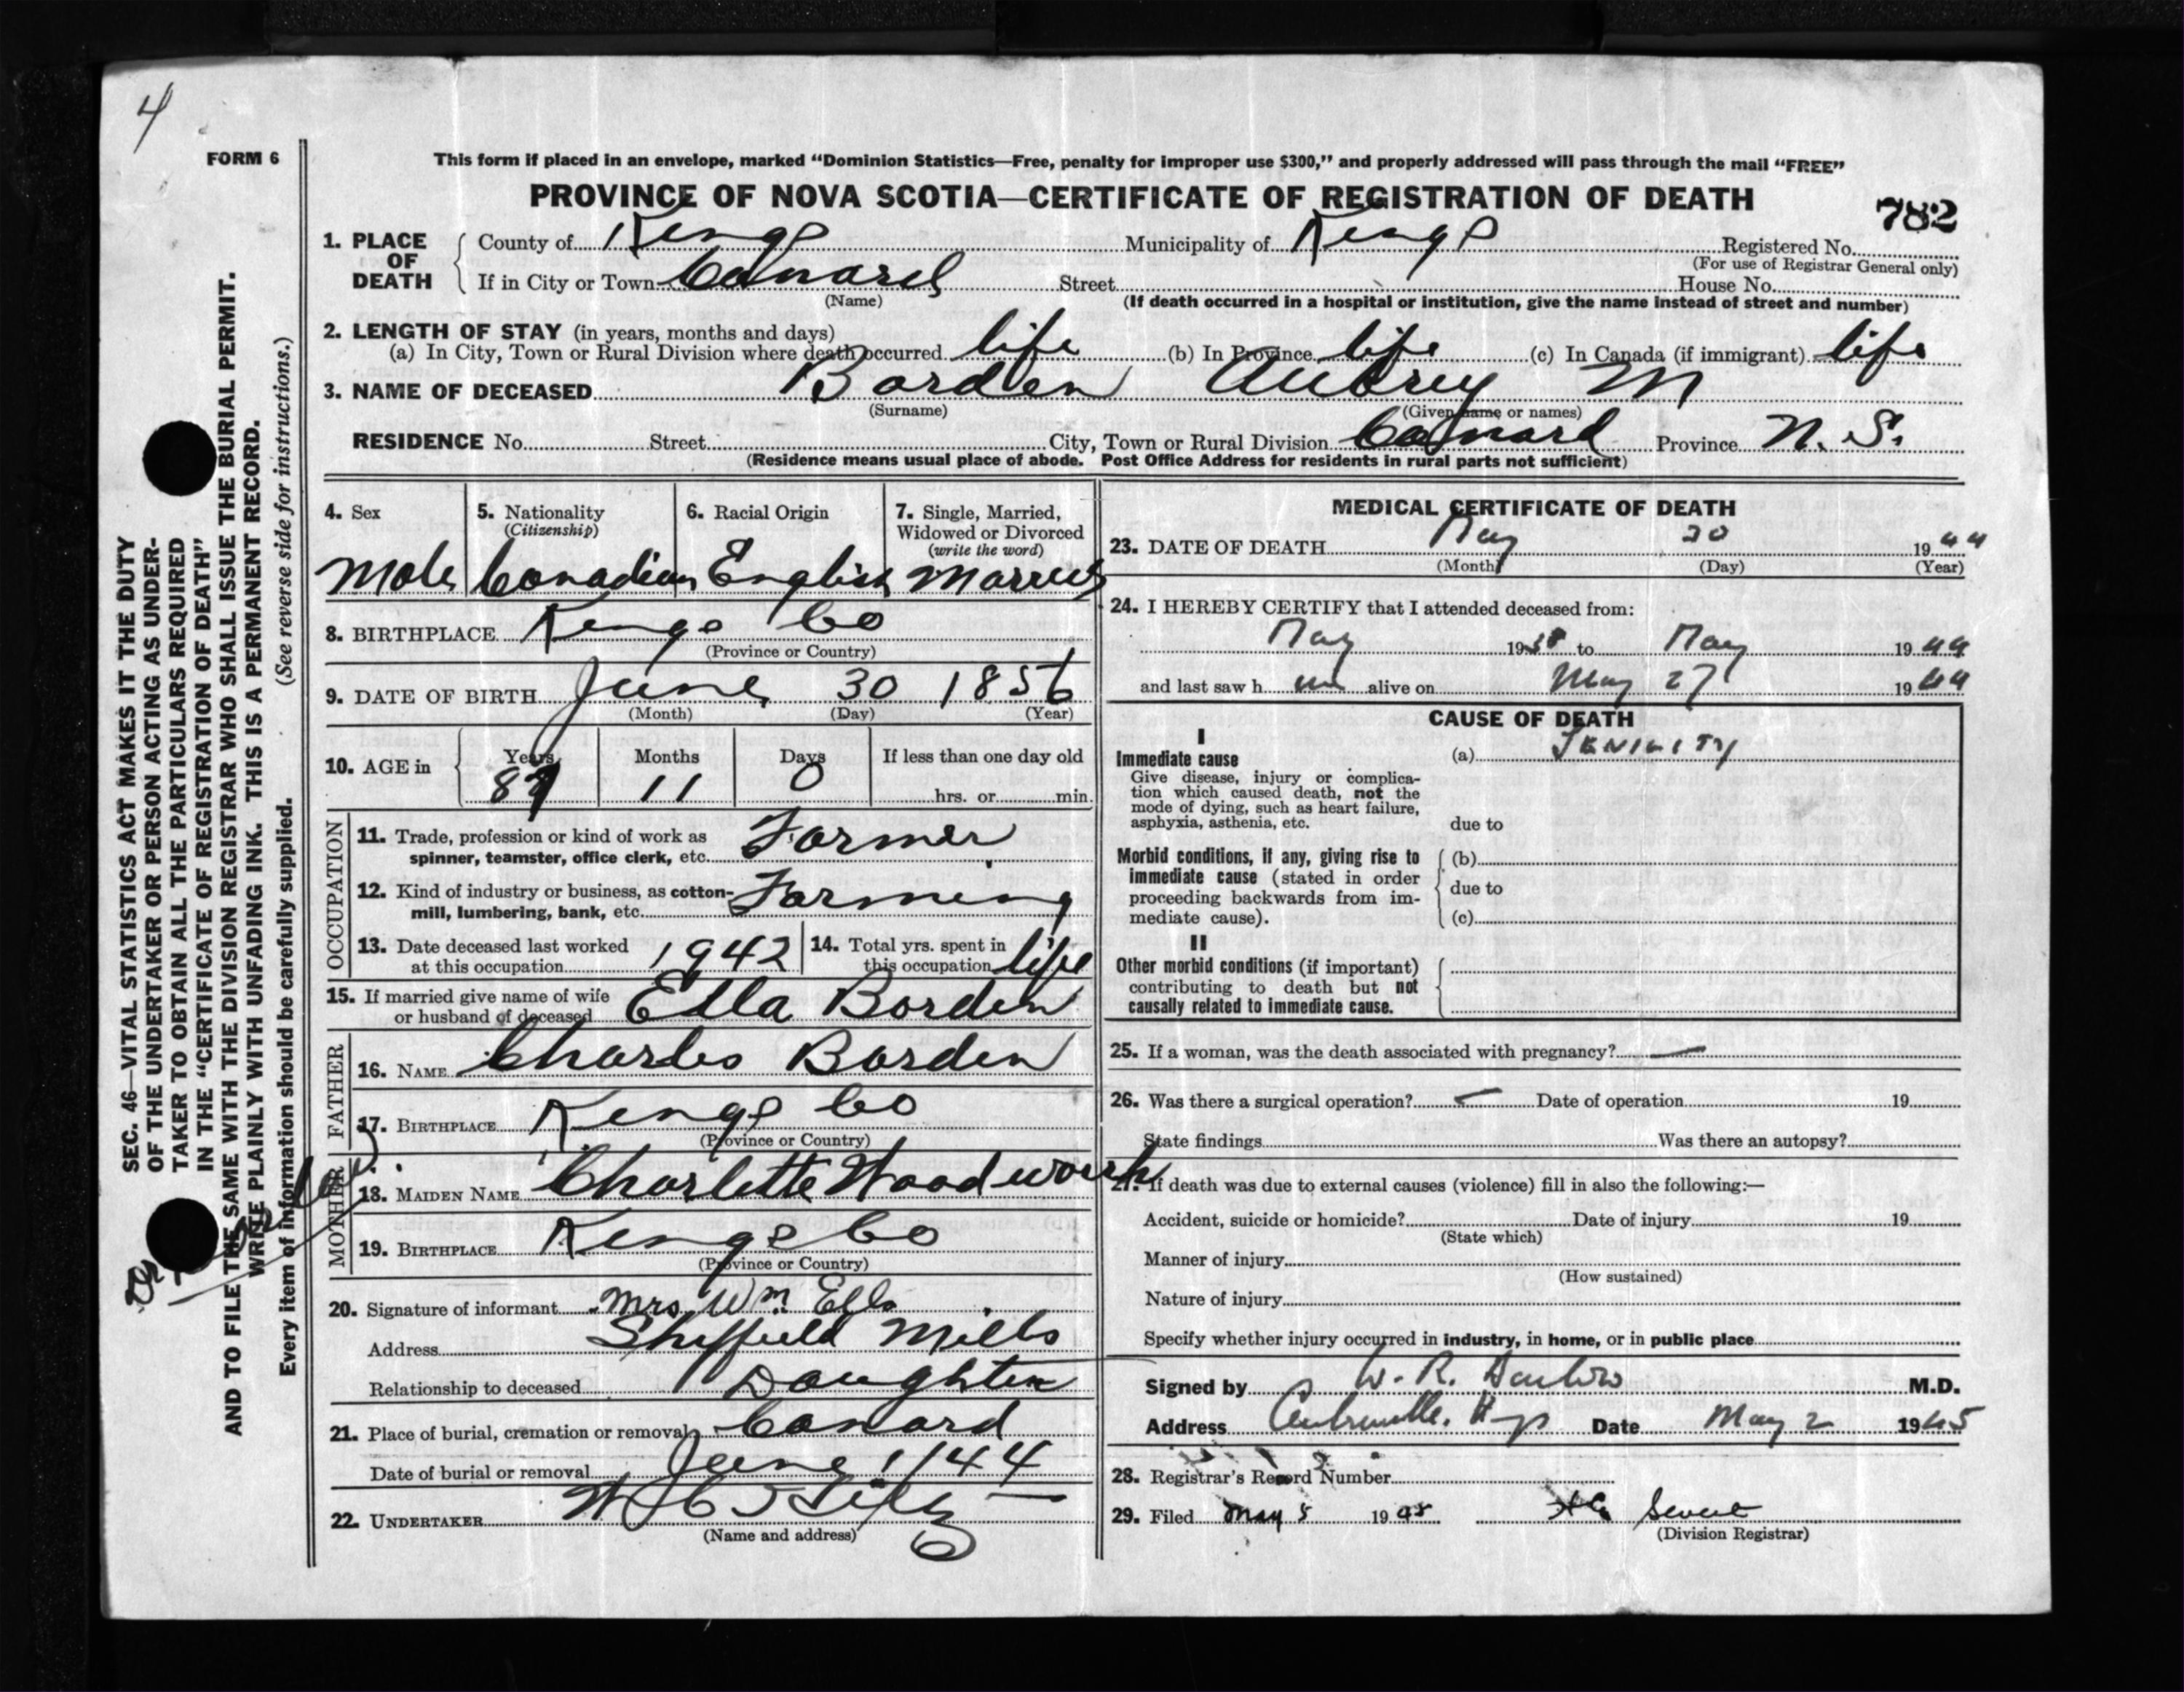 4
FORM 6
This form if placed in an envelope, marked "Dominion Statistics—Free, penalty for improper use $300," and properly addressed will pass through the mail "FREE"
PROVINCE OF NOVA SCOTIA—CERTIFICATE OF REGISTRATION OF DEATH
782
1. PLACE OF DEATH County of Kings Municipality of Kings Registered No.
(For use of Registrar General only)
If in City or Town Canard Street House No.
(Name) (If death occurred in a hospital or institution, give the name instead of street and number)
2. LENGTH OF STAY (in years, months and days)
(a) In City, Town or Rural Division where death occurred life (b) In Province life (c) In Canada (if immigrant) life
3. NAME OF DECEASED Borden Aubrey M
(Surname) (Given name or names)
RESIDENCE No. Street City, Town or Rural Division Canard Province N. S.
(Residence means usual place of abode. Post Office Address for residents in rural parts not sufficient)
4. Sex 5. Nationality (Citizenship) 6. Racial Origin 7. Single, Married, Widowed or Divorced (write the word)
Male Canadian English Married
8. BIRTHPLACE Kings Co
(Province or Country)
9. DATE OF BIRTH June 30 1856
(Month) (Day) (Year)
10. AGE in Years Months Days If less than one day old
87 11 0 hrs. or min.
OCCUPATION
11. Trade, profession or kind of work as
spinner, teamster, office clerk, etc. Farmer
12. Kind of industry or business, as cotton-
mill, lumbering, bank, etc. Farming
13. Date deceased last worked
at this occupation 1942
14. Total yrs. spent in
this occupation life
15. If married give name of wife
or husband of deceased Ella Borden
FATHER
16. NAME Charles Borden
17. BIRTHPLACE Kings Co
(Province or Country)
MOTHER
18. MAIDEN NAME Charlotte Woodworth
19. BIRTHPLACE Kings Co
(Province or Country)
20. Signature of informant Mrs Wm Ells
Address Sheffield Mills
Relationship to deceased Daughter
21. Place of burial, cremation or removal Canard
Date of burial or removal June 1/44
22. UNDERTAKER
(Name and address)
MEDICAL CERTIFICATE OF DEATH
23. DATE OF DEATH May 30 1944
(Month) (Day) (Year)
24. I HEREBY CERTIFY that I attended deceased from:
May 1938 to May 1944
and last saw h im alive on May 27 1944
CAUSE OF DEATH
I
Immediate cause (a) SENILITY
Give disease, injury or complica-
tion which caused death, not the
mode of dying, such as heart failure,
asphyxia, asthenia, etc. due to
Morbid conditions, if any, giving rise to (b)
immediate cause (stated in order due to
proceeding backwards from im-
mediate cause). (c)
II
Other morbid conditions (if important)
contributing to death but not
causally related to immediate cause.
25. If a woman, was the death associated with pregnancy? —
26. Was there a surgical operation? Date of operation 19
State findings Was there an autopsy?
27. If death was due to external causes (violence) fill in also the following:—
Accident, suicide or homicide? Date of injury 19
(State which)
Manner of injury
(How sustained)
Nature of injury
Specify whether injury occurred in industry, in home, or in public place
Signed by W. R. M.D.
Address Date May 2 1945
28. Registrar's Record Number
29. Filed May 5 1945
(Division Registrar)
SEC. 46—VITAL STATISTICS ACT MAKES IT THE DUTY
OF THE UNDERTAKER OR PERSON ACTING AS UNDER-
TAKER TO OBTAIN ALL THE PARTICULARS REQUIRED
IN THE "CERTIFICATE OF REGISTRATION OF DEATH"
AND TO FILE THE SAME WITH THE DIVISION REGISTRAR WHO SHALL ISSUE THE BURIAL PERMIT.
WRITE PLAINLY WITH UNFADING INK. THIS IS A PERMANENT RECORD.
Every item of information should be carefully supplied. (See reverse side for instructions.)